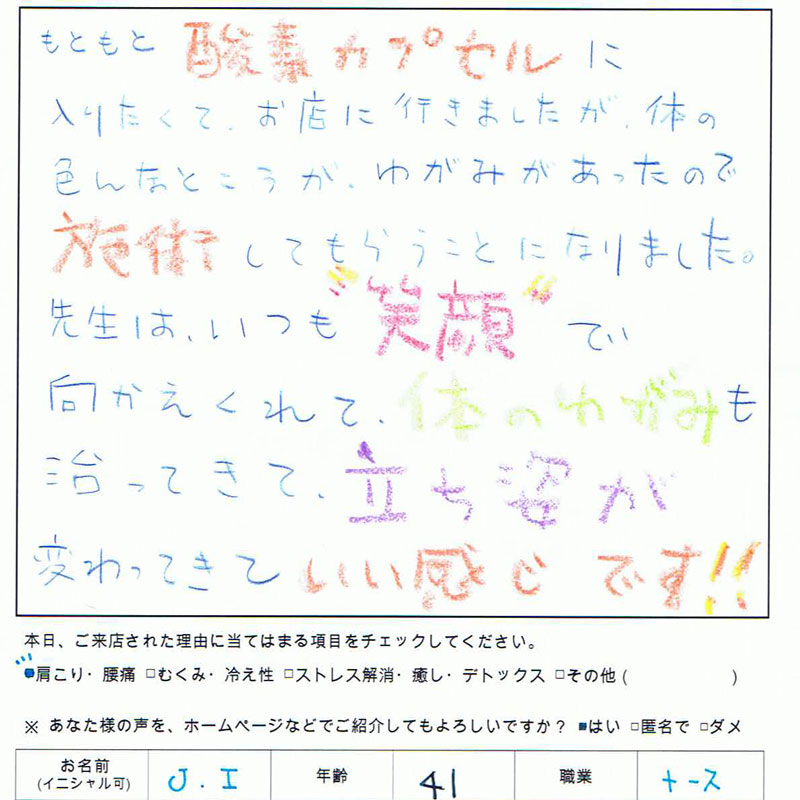 もともと 酸素カプセルに
入りたくて、お店に行きましたが、体の
色んなところうが、わがみがあったので
施術してもらうことになりました。
先生は、いつも"笑顔"でい
向かえくれて、体のわがみも
治ってきて、立ち姿が
変わってきていい感じです!!
本日、ご来店された理由に当てはまる項目をチェックしてください。
■肩こり・腰痛 □むくみ・冷え性 □ストレス解消・癒し・デトックス □その他 ( )
※ あなた様の声を、ホームページなどでご紹介してもよろしいですか? ■はい □匿名で □ダメ
お名前 (イニシャル可) J.I 年齢 41 職業 ナース